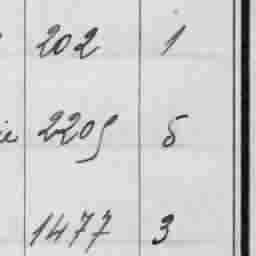 202 1
2205 5
1477 3